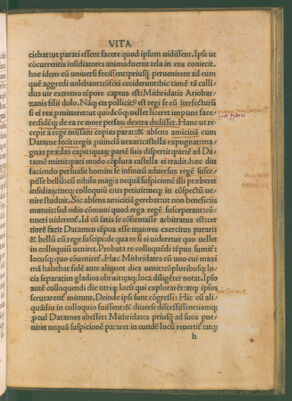 VITA
ciebat ut parati essent facere quod ipsum uidissent. Ipse ut
cōcurrentis insidiatores animaduertit tela in eos coniecit.
hoc idem cū uniuersi fecissent: priusq̄ peruenirent ad eum
quē aggredi uolebant cōfixi cecideruntthic tamē tā calli
dus uir extremo tēpore captus est Mithridatis Ariobar
zanis filii dolo. Nāq̄ eis pollicitꝰ est regi se eū īterfecturū
si ei rex pmitteret ut quodcūq̄ uellet liceret impune facere
fidēq̄ de ea re more persaɽ dextra dedisset. Hanc ut re
cepit a rege missam copias parat: & absens amicitiā cum
Datame fecit: regis puīcia uexat: castella expugnat: ma
gnas prædas capit: quaɽ partē suis dispertit: partē ad Da
tamē mittit: pari modo cōplura castella ei tradit. hæc diu
faciendo persuasit homini se infinitū aduersus regē susce
pisse bellū: cū nihilo magis nequā suspicionē illi præberet
insidiaɽ: neq̄ colloquiū eius petiuit: neq̄ in cōspectū ue
nire studuit. Sic absens amicitiā gerebat: ut non beneficiis
mutuis: sed odio cōmuni quod erga regē susceperant: cō
tineri uiderent̄. Id cū satis se cōfirmasse arbitratus est: cer
tiorē facit Datamē tēpus esse maiores exercitus parari:
& bellū cū rege suscipi: de qua re si ei uideretur quo uellet
in colloquiū ueniret. Probata re colloquēdi tēpus sumit̄:
locusq̄ quo cōueniret̄. Huc Mithridates cū uno cui maxi
mā habebat fidē ante aliquot dies uenit: cōpluribusq̄ lo
eis separatim gladios obruit: eaq̄ loca diligēter notat. Ipso
autē colloquendi die utriq̄ locū qui explorarēt: atq̄ ipsos
scrutarent̄ mittunt. Deinde ipsi sunt cōgressi: Hic cū ali
quādiu in colloquio fuissent: & diuersi discessissent: iamq̄
pcul Datames abesset: Mithridates priusq̄ ad suos pue
niret nequā suspicionē pararet in eundē locū reuertit̄: atq̄
h